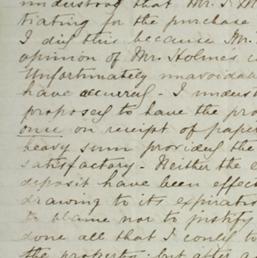 understood that Mr. J. M
trating for the purchase
I did this because Mr.
opinion of Mr. Holmes
Unfortunately unavoidab
have occurred - I unders
proposed to have the pro
once on receipt of paper
heavy sum provided the
satisfactory - Neither the e
deposit have been effec
drawing to its expirati
to blame nor to justify
done all that I could to
the property but after a